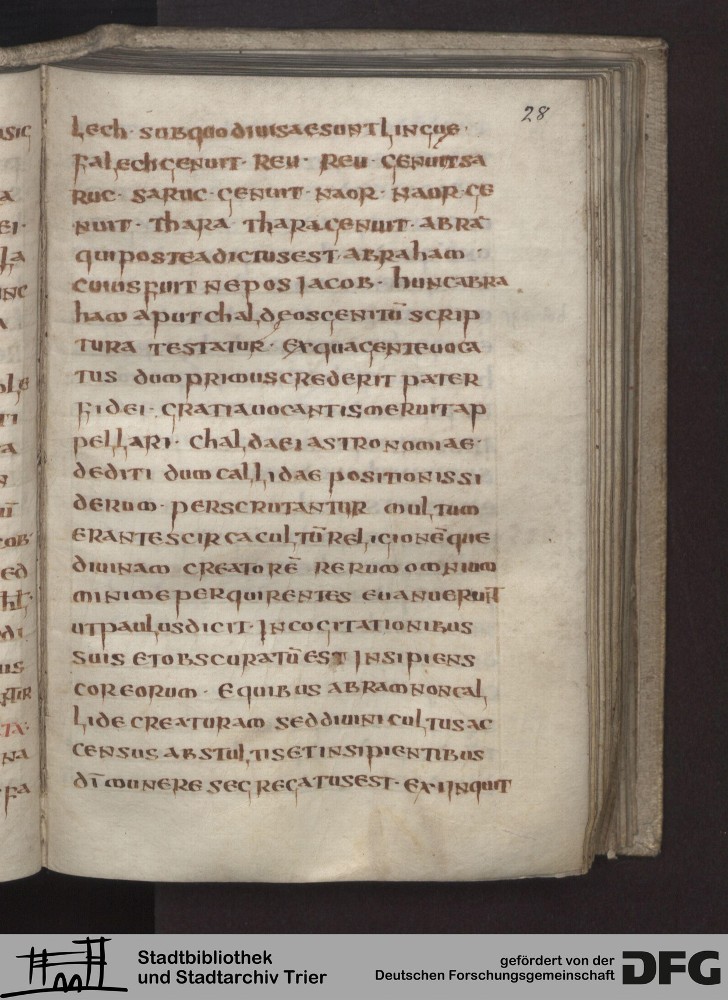 28
lech · subquo diuisaesunt lingue ·
falech genuit · reu · reu · genuit sa
ruc · saruc · genuit · naor · naor · ge
nuit · thara thara genuit · abrā
qui postea dictus est abraham ·
cuius fuit nepos iacob · hunc abra
ham aput chaldeos genitū scrip
tura testatur · ex qua gente uoca
tus dum primus crederit pater
fidei · gratia uocantis meruit ap
pellari · chaldaei astronomiae ·
dediti dum callidae positionis si
derum · perscrutantur multum
erantes circa cultū religionēque
diuinam creatorē rerum omnium
minime perquirentes euanuerunt
ut paulus dicit · in cogitationibus
suis et obscuratū est insipiens
cor eorum · e quibus abram non cal
lide creaturam sed diuini cultus ac
census abstultis et insipientibus
dī munere segregatus est · exi inquit
Stadtbibliothek
und Stadtarchiv Trier
gefördert von der
Deutschen Forschungsgemeinschaft
DFG